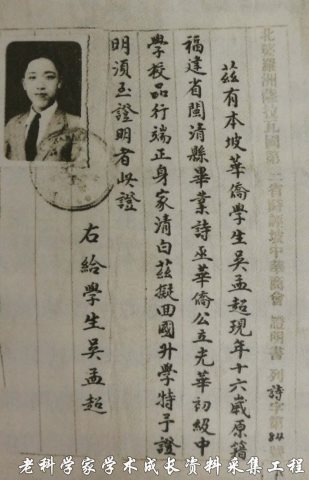 北婆羅洲薩拉瓦國第三省詩誣埠中華商會 證明書 列詩字第84號
茲有本坡華僑學生吳孟超現年十六歲原籍
福建省閩清縣畢業詩巫華僑公立光華初級中
學校品行端正身家清白茲擬回國升學特予證
明須至證明者此證
右給學生吳孟超
老科学家学术成长资料采集工程